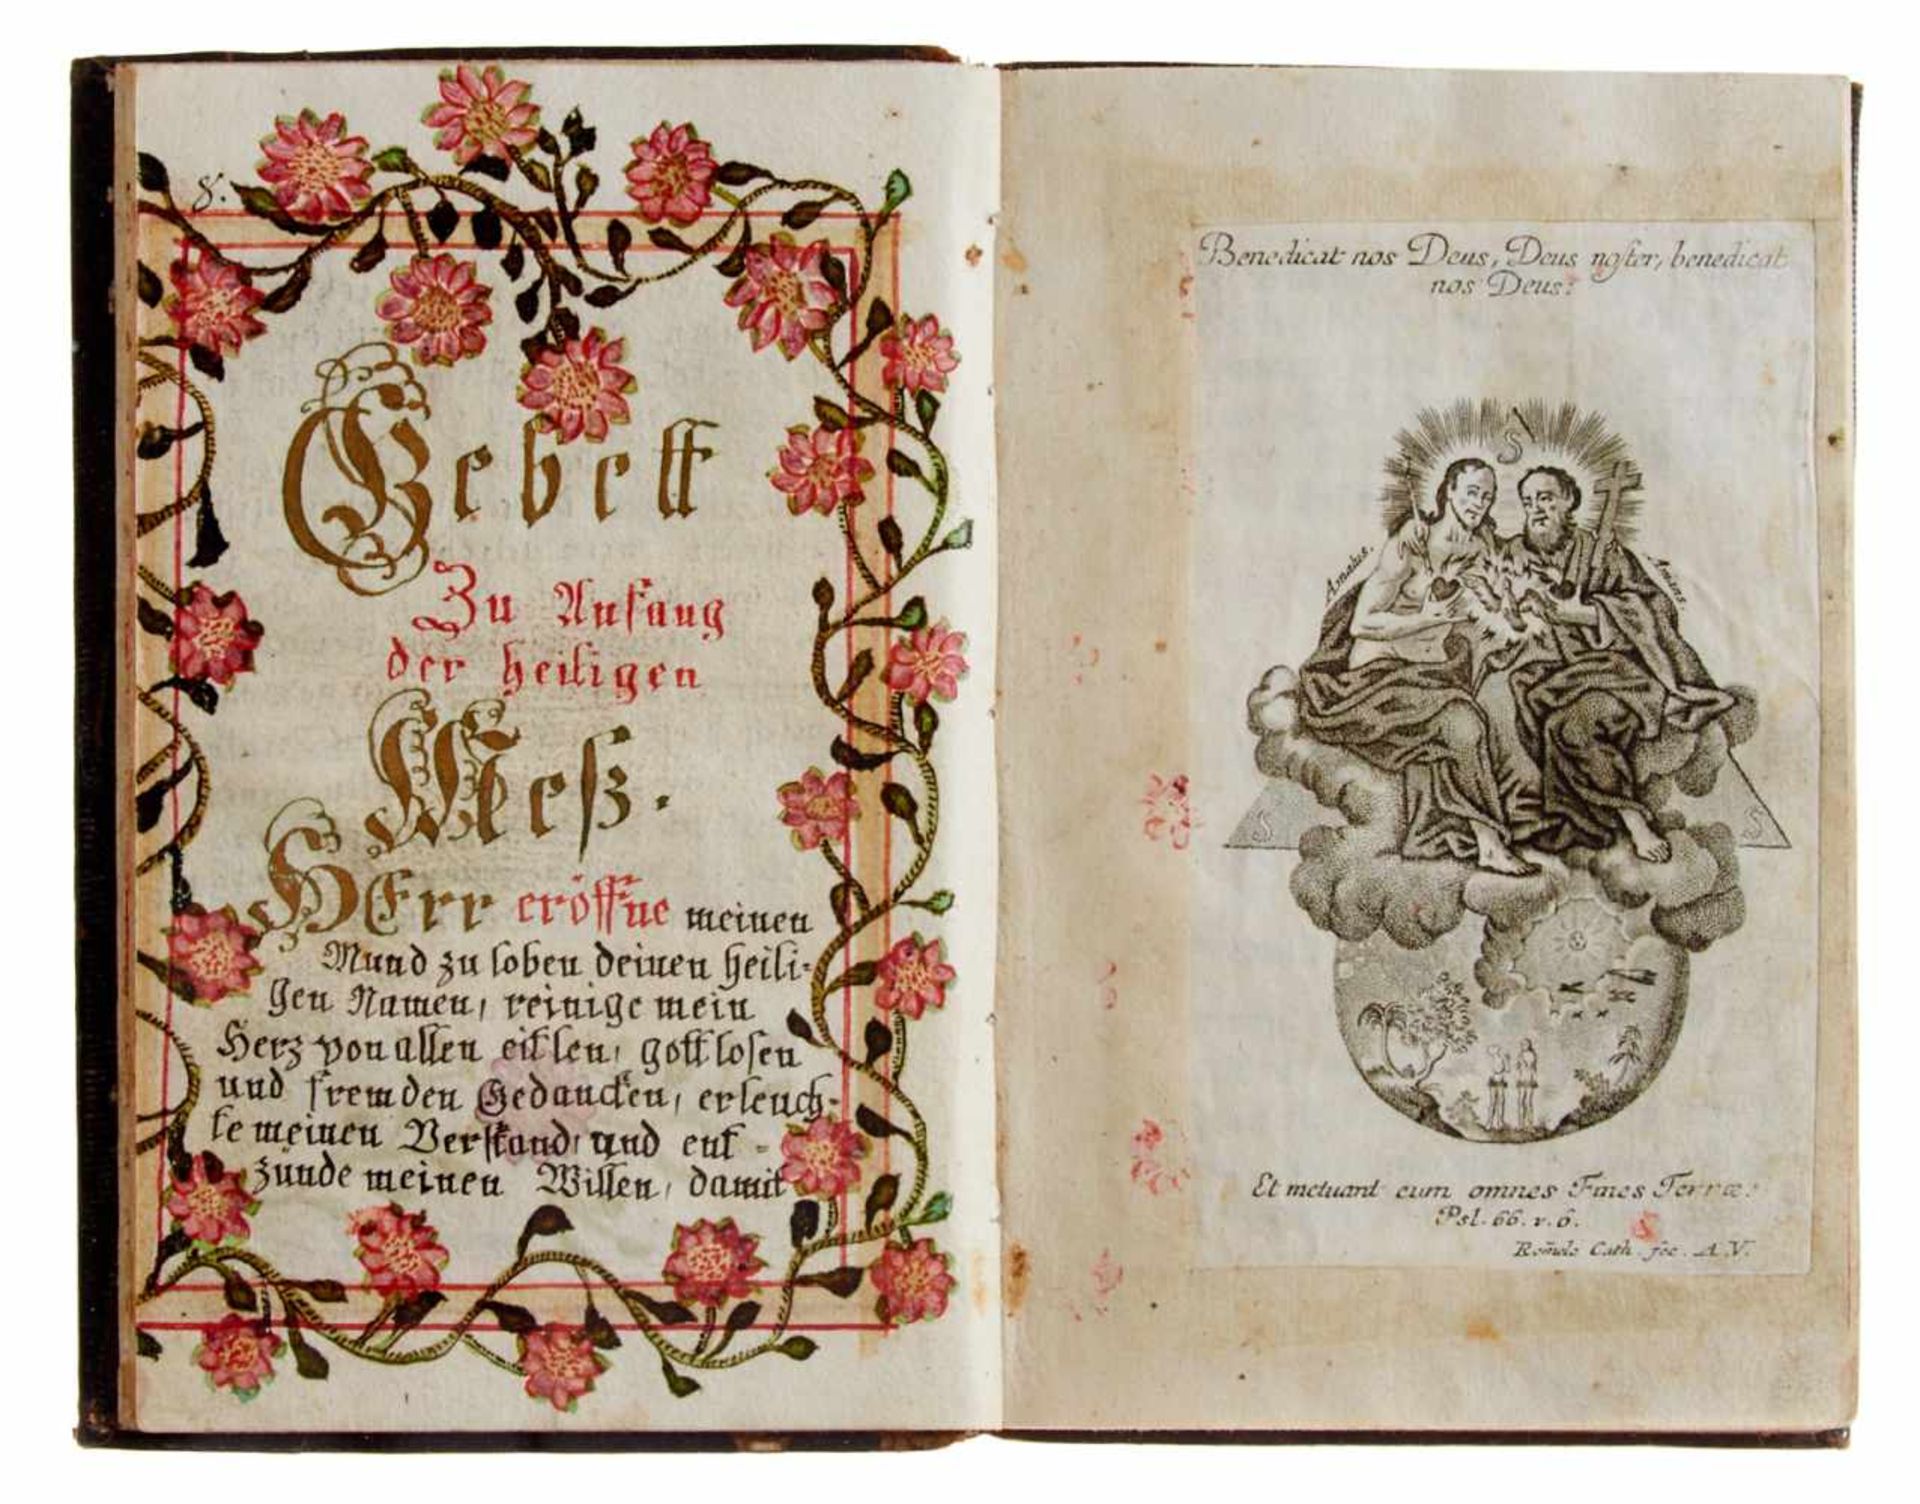 8.
Gebett
Zu Anfang
der heiligen
Meß.
HErr eröffne meinen
Mund zu loben deinen heili=
gen Namen, reinige mein
Herz von allen eitlen, gottlosen
und fremden Gedancken, erleuch=
te meinen Verstand, und ent=
zünde meinen Willen, damit
Benedicat nos Deus, Deus noster, benedicat
nos Deus:
S
Amatus.
Amans.
S
S
Et metuant eum omnes Fines Terræ:
Psl. 66. v. 6.
Cath. fec. A. V.